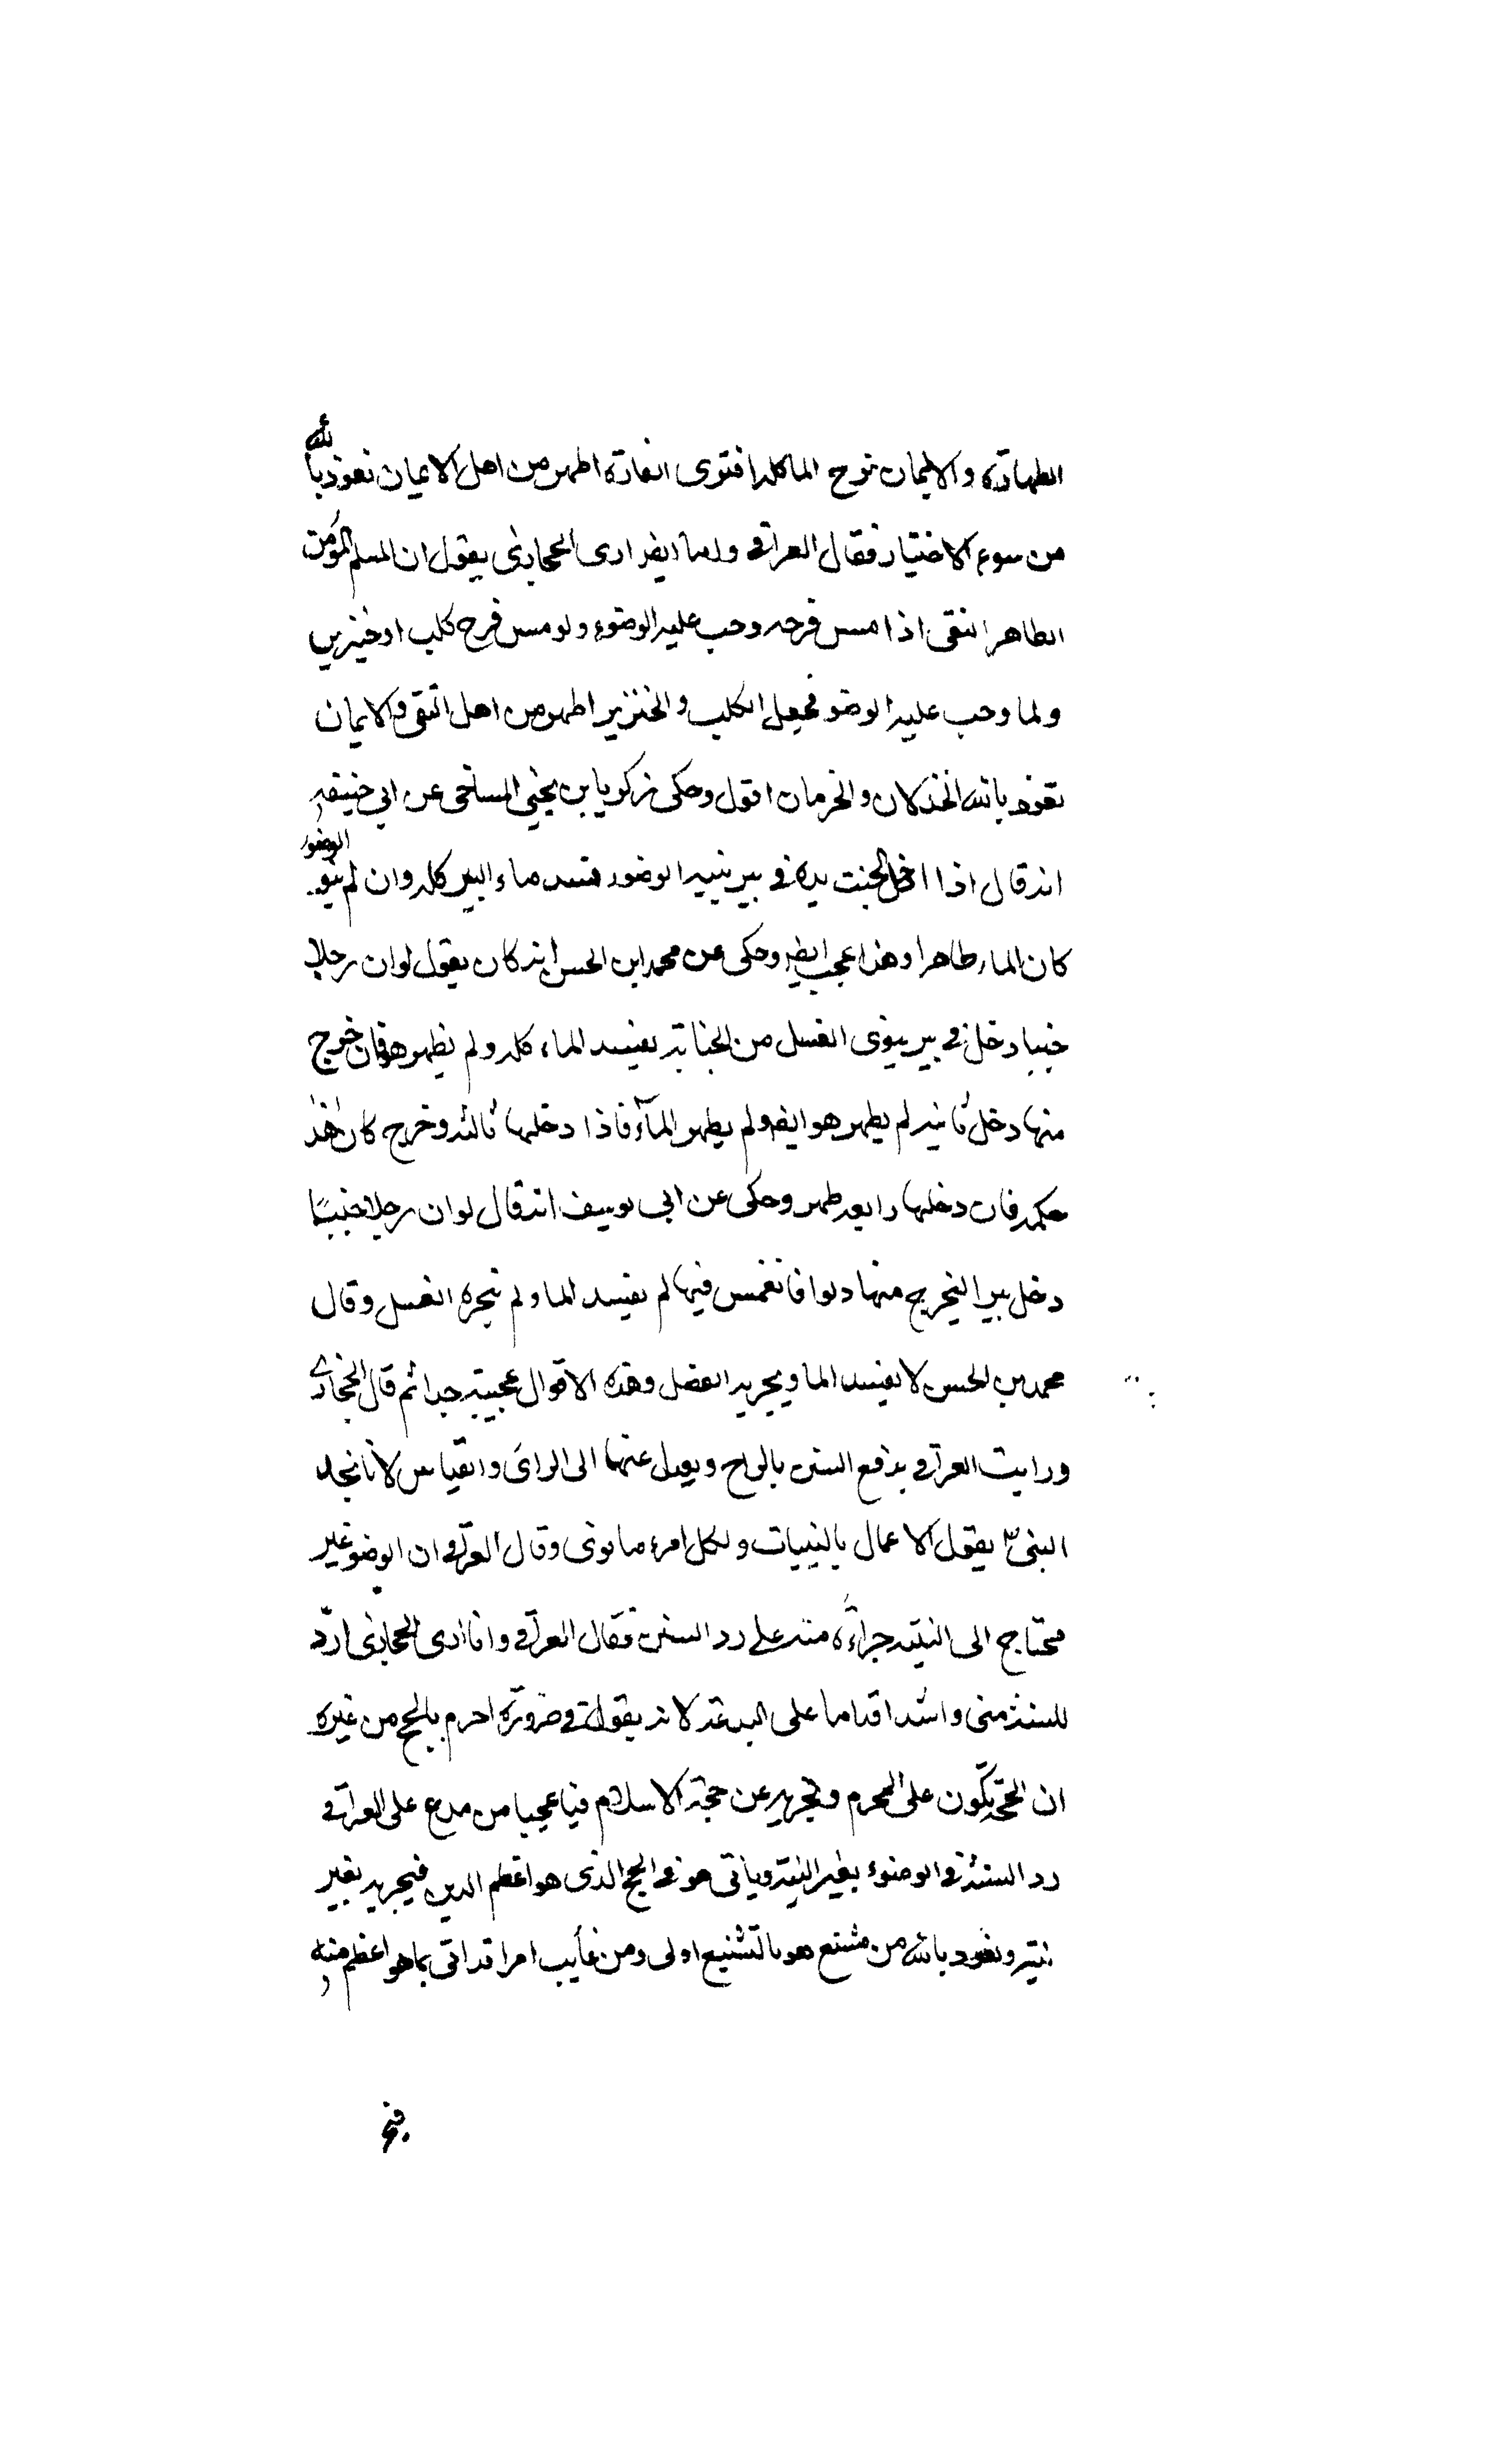 الطهارة والايمان نزح الماء كله افترى الفارة اطهر من اهل الايمان نعوذ بالله
من سوء الاختيار فقال العراقي وانا ايضا ارى الحجازى يقول ان المسلم المؤمن
الطاهر التقى اذا مس فرجه وجب عليه الوضوء ولو مس فرج كلب او خنزير
ولما وجب عليه الوضو فجعل الكلب والخنزير اطهر من اهل التقى والايمان
نعوذ بالله الخذلان والحرمان اقول وحكى زكريا بن يحيى الساجى عن ابي حنيفه
انه قال اذا ادخل الجنب يده في بير بنية الوضوء فسد ماء البير كله وان لم ينو الوضوء
كان الماء طاهرا وهذا عجب ايضا وحكى عن محمد ابن الحسن انه كان يقول لو ان رجلا
جنبا دخل في بير ينوى الغسل من الجنابة يفسد الماء كله ولم يطهر هو فان خرج
منها دخل ثانية لم يطهر هو ايضا ولم يطهر المآء فاذا دخلها ثالثة وخرج كان هذا
حكمه فان دخلها رابعة طهر وحكى عن ابى يوسف انه قال لو ان رجلا جنبا
دخل بيرا ليخرج منها دلوا فانغمس فيها لم يفسد الما ولم يجزه الغسل وقال
محمد بن الحسن لا يفسد الما ويجزيه الغسل وهذه الاقوال عجيبة جدا ثم قال الحجازي
ورايت العراقي يدفع السنن بالراح ويعدل عنها الى الراى والقياس لانا نجد
النبى ص يقول الاعمال بالنيات ولكل امرء ما نوى وقال العراقي ان الوضو غير
محتاج الى النية جراءة منه على رد السنن فقال العراقي وانا ارى الحجازى اردّ
للسنة منى واشد اقداما على البدعة لانه يقول في ضرورة احرم بالحج من غيره
ان الحجة تكون على المحرم وتجزيه عن حجة الاسلام فيا عجبا من مدع على العراقي
رد السنة في الوضوء بغير النية وياتى هو في الحج الذى هو اعظم الدين فيجزيه بغير
نية ونعوذ بالله من مشنع هو بالتشنيع اولى ومن غايب امرا قد اتى بما هو اعظم منه